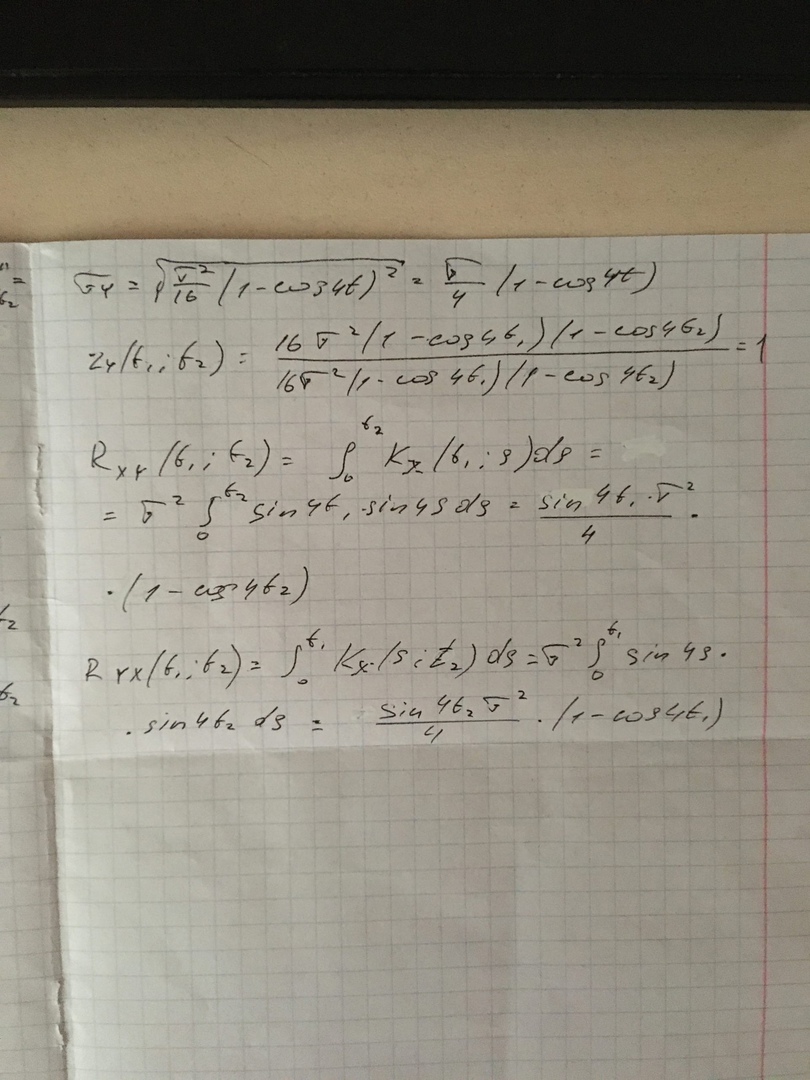 " =
t₂
σ_Y = √(σ²/16 (1-cos4t)²) = σ/4 (1-cos4t)
r_Y(t₁; t₂) = (16σ²(1-cos4t₁)(1-cos4t₂))/(16σ²(1-cos4t₁)(1-cos4t₂)) = 1
R_XY(t₁; t₂) = ∫₀^t₂ K_X(t₁; s)ds =
= σ² ∫₀^t₂ sin4t₁·sin4s ds = (sin4t₁·σ²)/4 ·
·(1-cos4t₂)
t₂
R_YX(t₁; t₂) = ∫₀^t₁ K_X(s; t₂)ds = σ² ∫₀^t₁ sin4s·
t₂
· sin4t₂ ds = (sin4t₂ σ²)/4 · (1-cos4t₁)